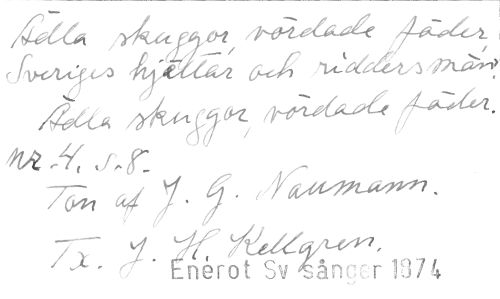 Ädla skuggor, vördade fäder,
Sveriges hjältar och riddersmän!
Ädla skuggor, vördade fäder.
nr. 4. s. 8.
Ton af J. G. Naumann.
Tx. J. H. Kellgren.
Enerot Sv sånger 1974